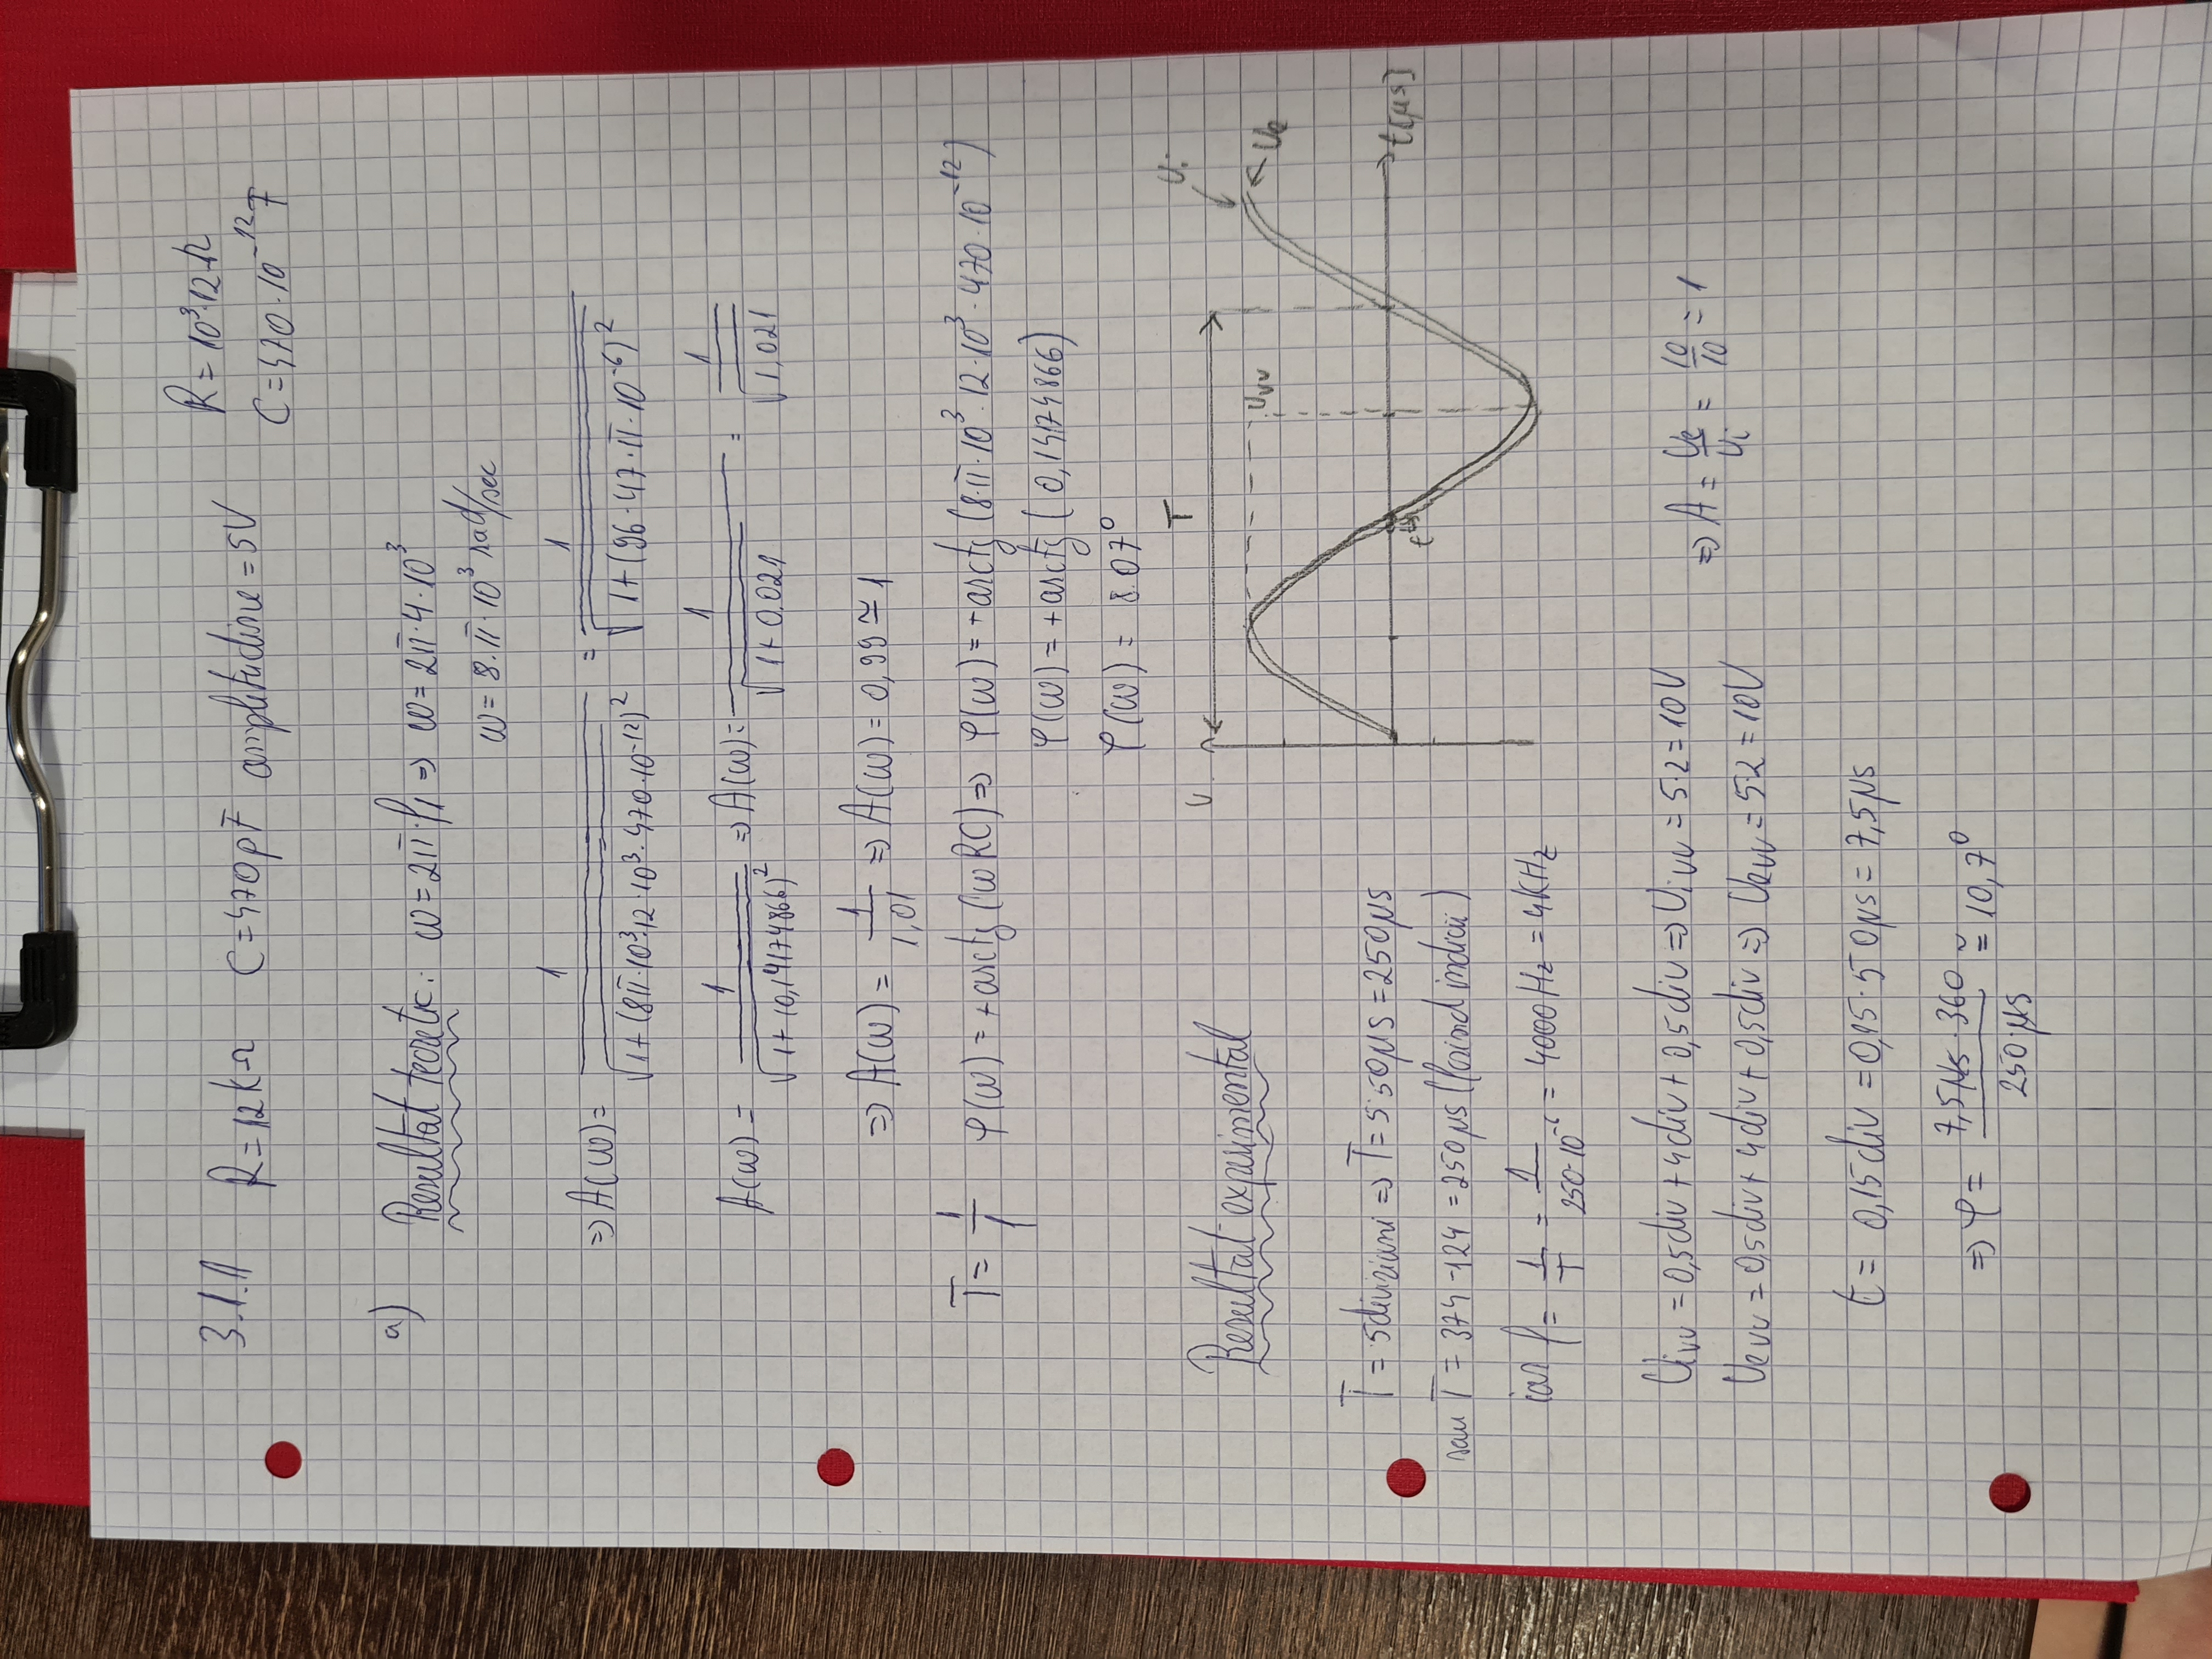 3.1.1 R = 12 kΩ C = 470 pF amplitudine = 5V R = 10³·12 Ω
C = 470·10⁻¹² F
a) Rezultat teoretic: ω = 2π·f₁ ⇒ ω = 2π·4·10³
ω = 8·π·10³ rad/sec
⇒ A(ω) = 1/√(1+(8π·10³·12·10³·470·10⁻¹²)²) = 1/√(1+(96·47·π·10⁻⁶)²)
A(ω) = 1/√(1+(0,14174866)²) ⇒ A(ω) = 1/√(1+0,021) = 1/√(1,021)
⇒ A(ω) = 1/1,01 ⇒ A(ω) = 0,99 ≃ 1
T = 1/f φ(ω) = +arctg(ωRC) ⇒ φ(ω) = +arctg(8·π·10³·12·10³·470·10⁻¹²)
φ(ω) = +arctg(0,14174866)
φ(ω) = 8.07°
Rezultat experimental
U T Ui
Uvv Ue
t t[μs]
T = 5 diviziuni ⇒ T = 5·50μs = 250μs
sau T = 374 - 124 = 250μs (folosind indicii)
iar f = 1/T = 1/250·10⁻⁶ = 4000 Hz = 4KHz
Uivv = 0,5div + 4div + 0,5div ⇒ Uivv = 5·2 = 10V ⇒ A = Ue/Ui = 10/10 = 1
Uevv = 0,5div + 4div + 0,5div ⇒ Uevv = 5·2 = 10V
t = 0,15div = 0,15·50μs = 7,5μs
⇒ φ = 7,5μs·360/250μs ≅ 10,7°